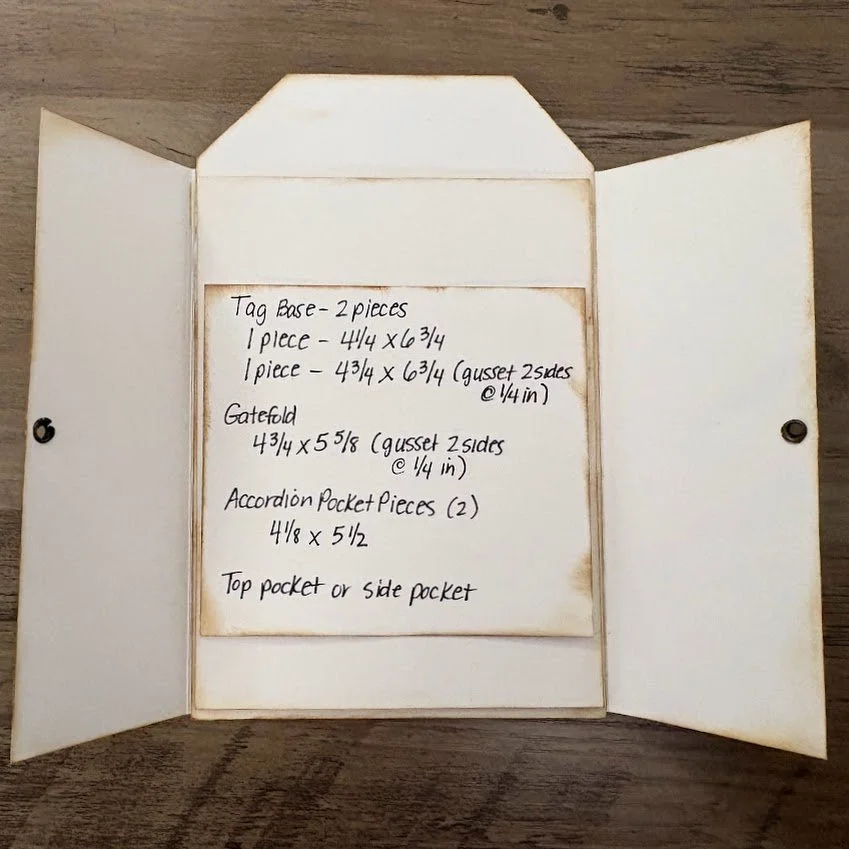 Tag Base - 2 pieces
1 piece - 4 1/4 x 6 3/4
1 piece - 4 3/4 x 6 3/4 (gusset 2 sides
@ 1/4 in)
Gatefold
4 3/4 x 5 5/8 (gusset 2 sides
@ 1/4 in)
Accordion Pocket Pieces (2)
4 1/8 x 5 1/2
Top pocket or side pocket